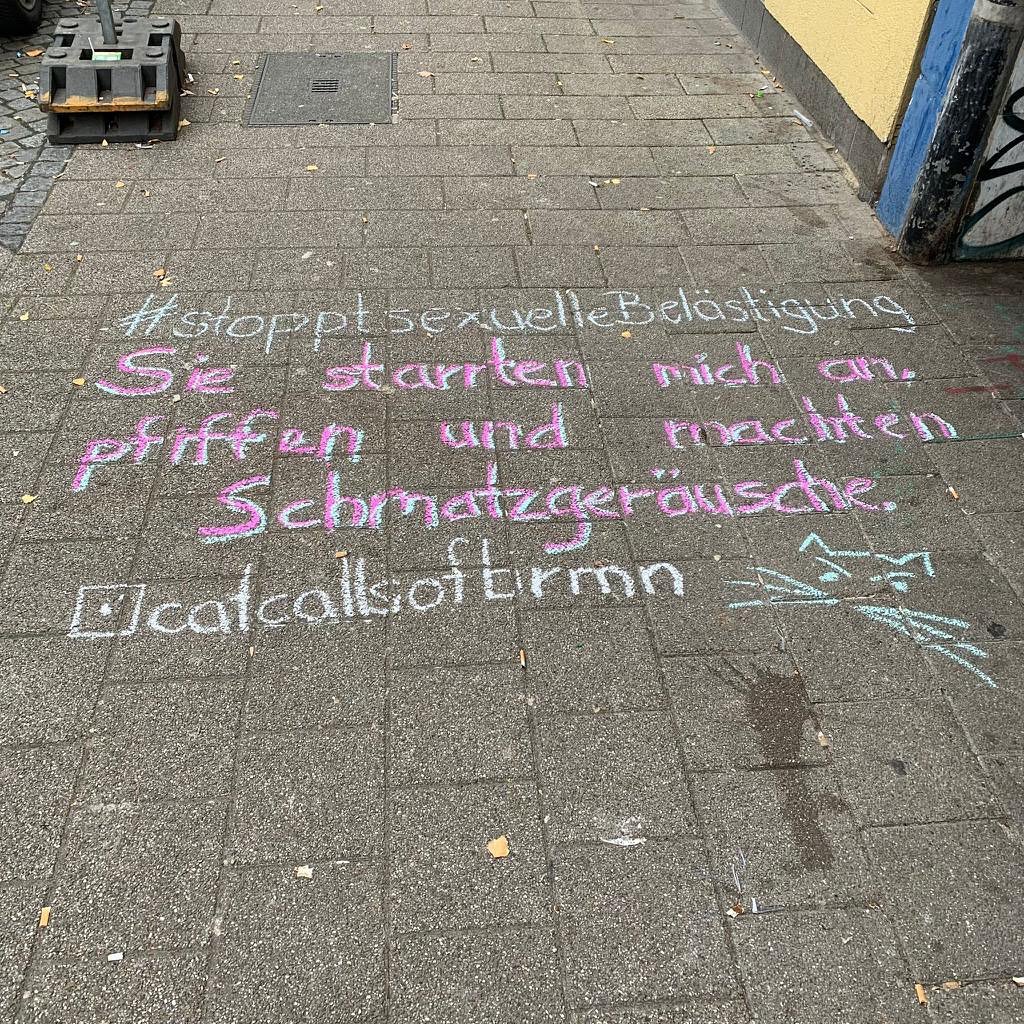 #stopptsexuelleBelästigung
Sie starrten mich an,
pfiffen und machten
Schmatzgeräusche.
catcallsofbrmn